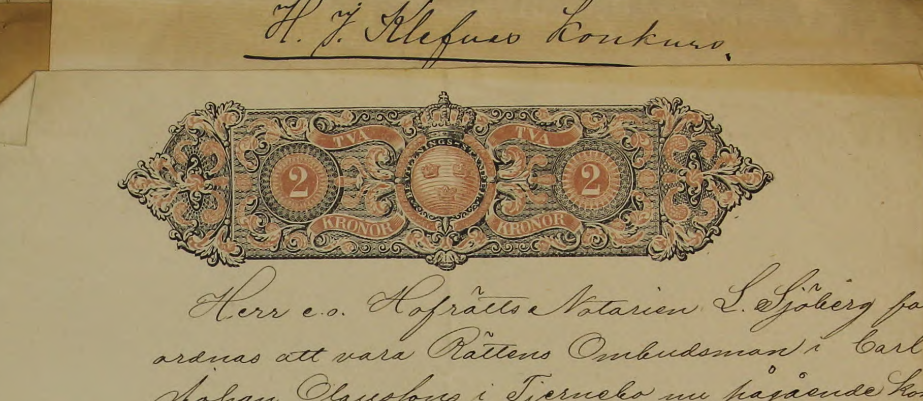 H. J. Klefuas Konkurs.
TVÅ TVÅ
2 2
KRONOR KRONOR
Herr e.o. Hofrätts Notarien L. Sjöberg
ordnas att vara Rättens Ombudsman i Carl
Johan Olaussons i Tjernebo nu pågående